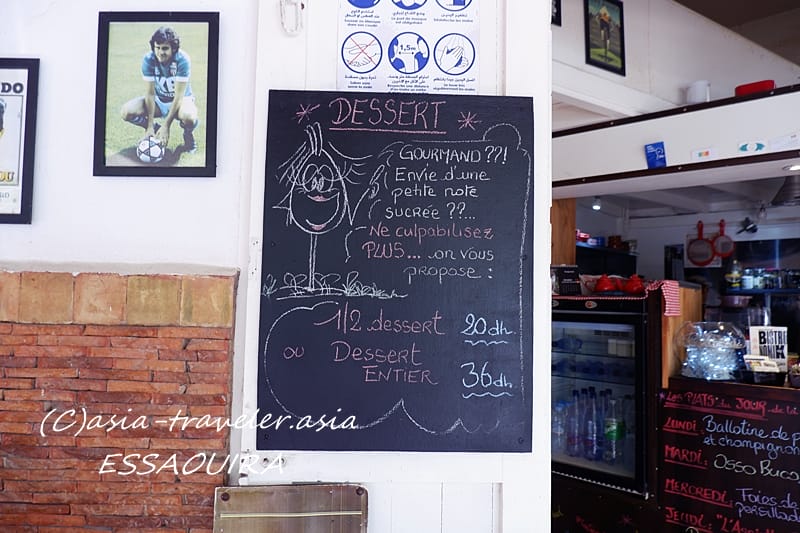 DESSERT
GOURMAND ??!
Envie d'une
petite note
sucrée ??...
Ne culpabilisez
PLUS... on vous
propose :
1/2 dessert 20dh.
ou Dessert
ENTIER 36dh
1,5m
LES PLATS du JOUR
LUNDI: Ballotine de
et champignon
MARDI: Osso Buco
MERCREDI: Foies de
persillade
JEUDI:
(C)asia-traveler.asia
ESSAOUIRA